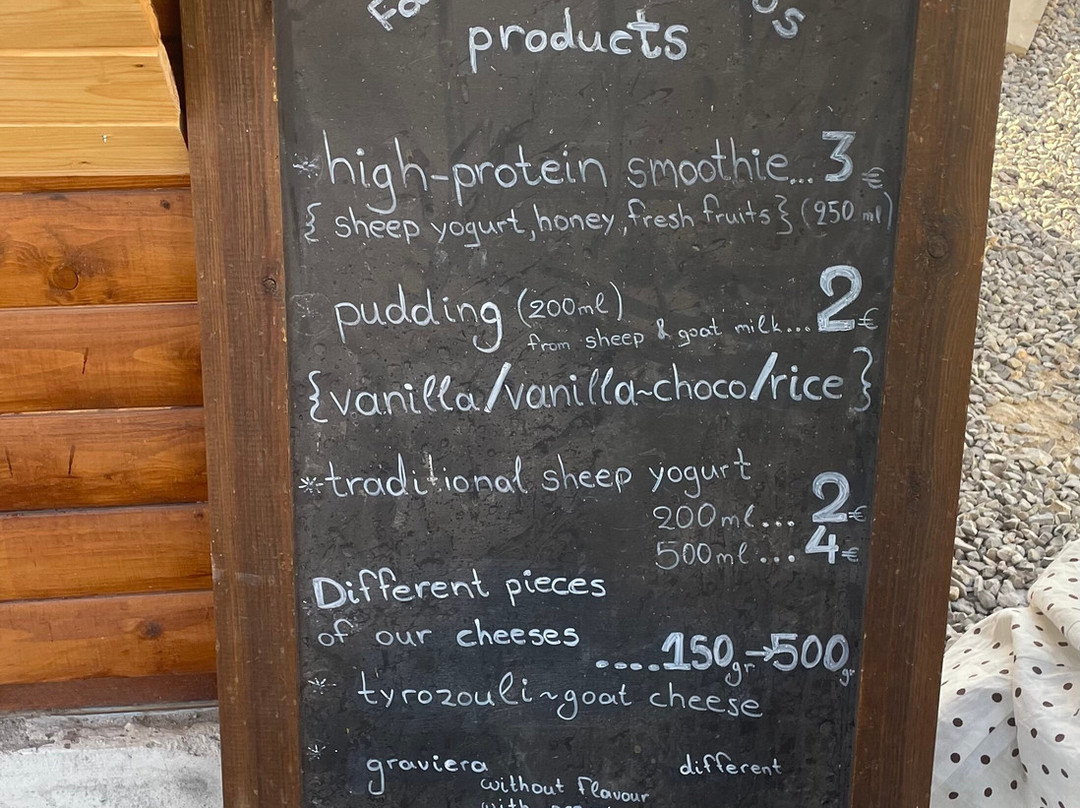 products
*high-protein smoothie... 3 €
{ sheep yogurt, honey, fresh fruits } (250 ml)
pudding (200ml)
from sheep & goat milk... 2 €
{vanilla/vanilla~choco/rice}
*traditional sheep yogurt
200ml... 2 €
500ml... 4 €
Different pieces
of our cheeses
....150gr→500gr
* tyrozouli~goat cheese
* graviera different
without flavour